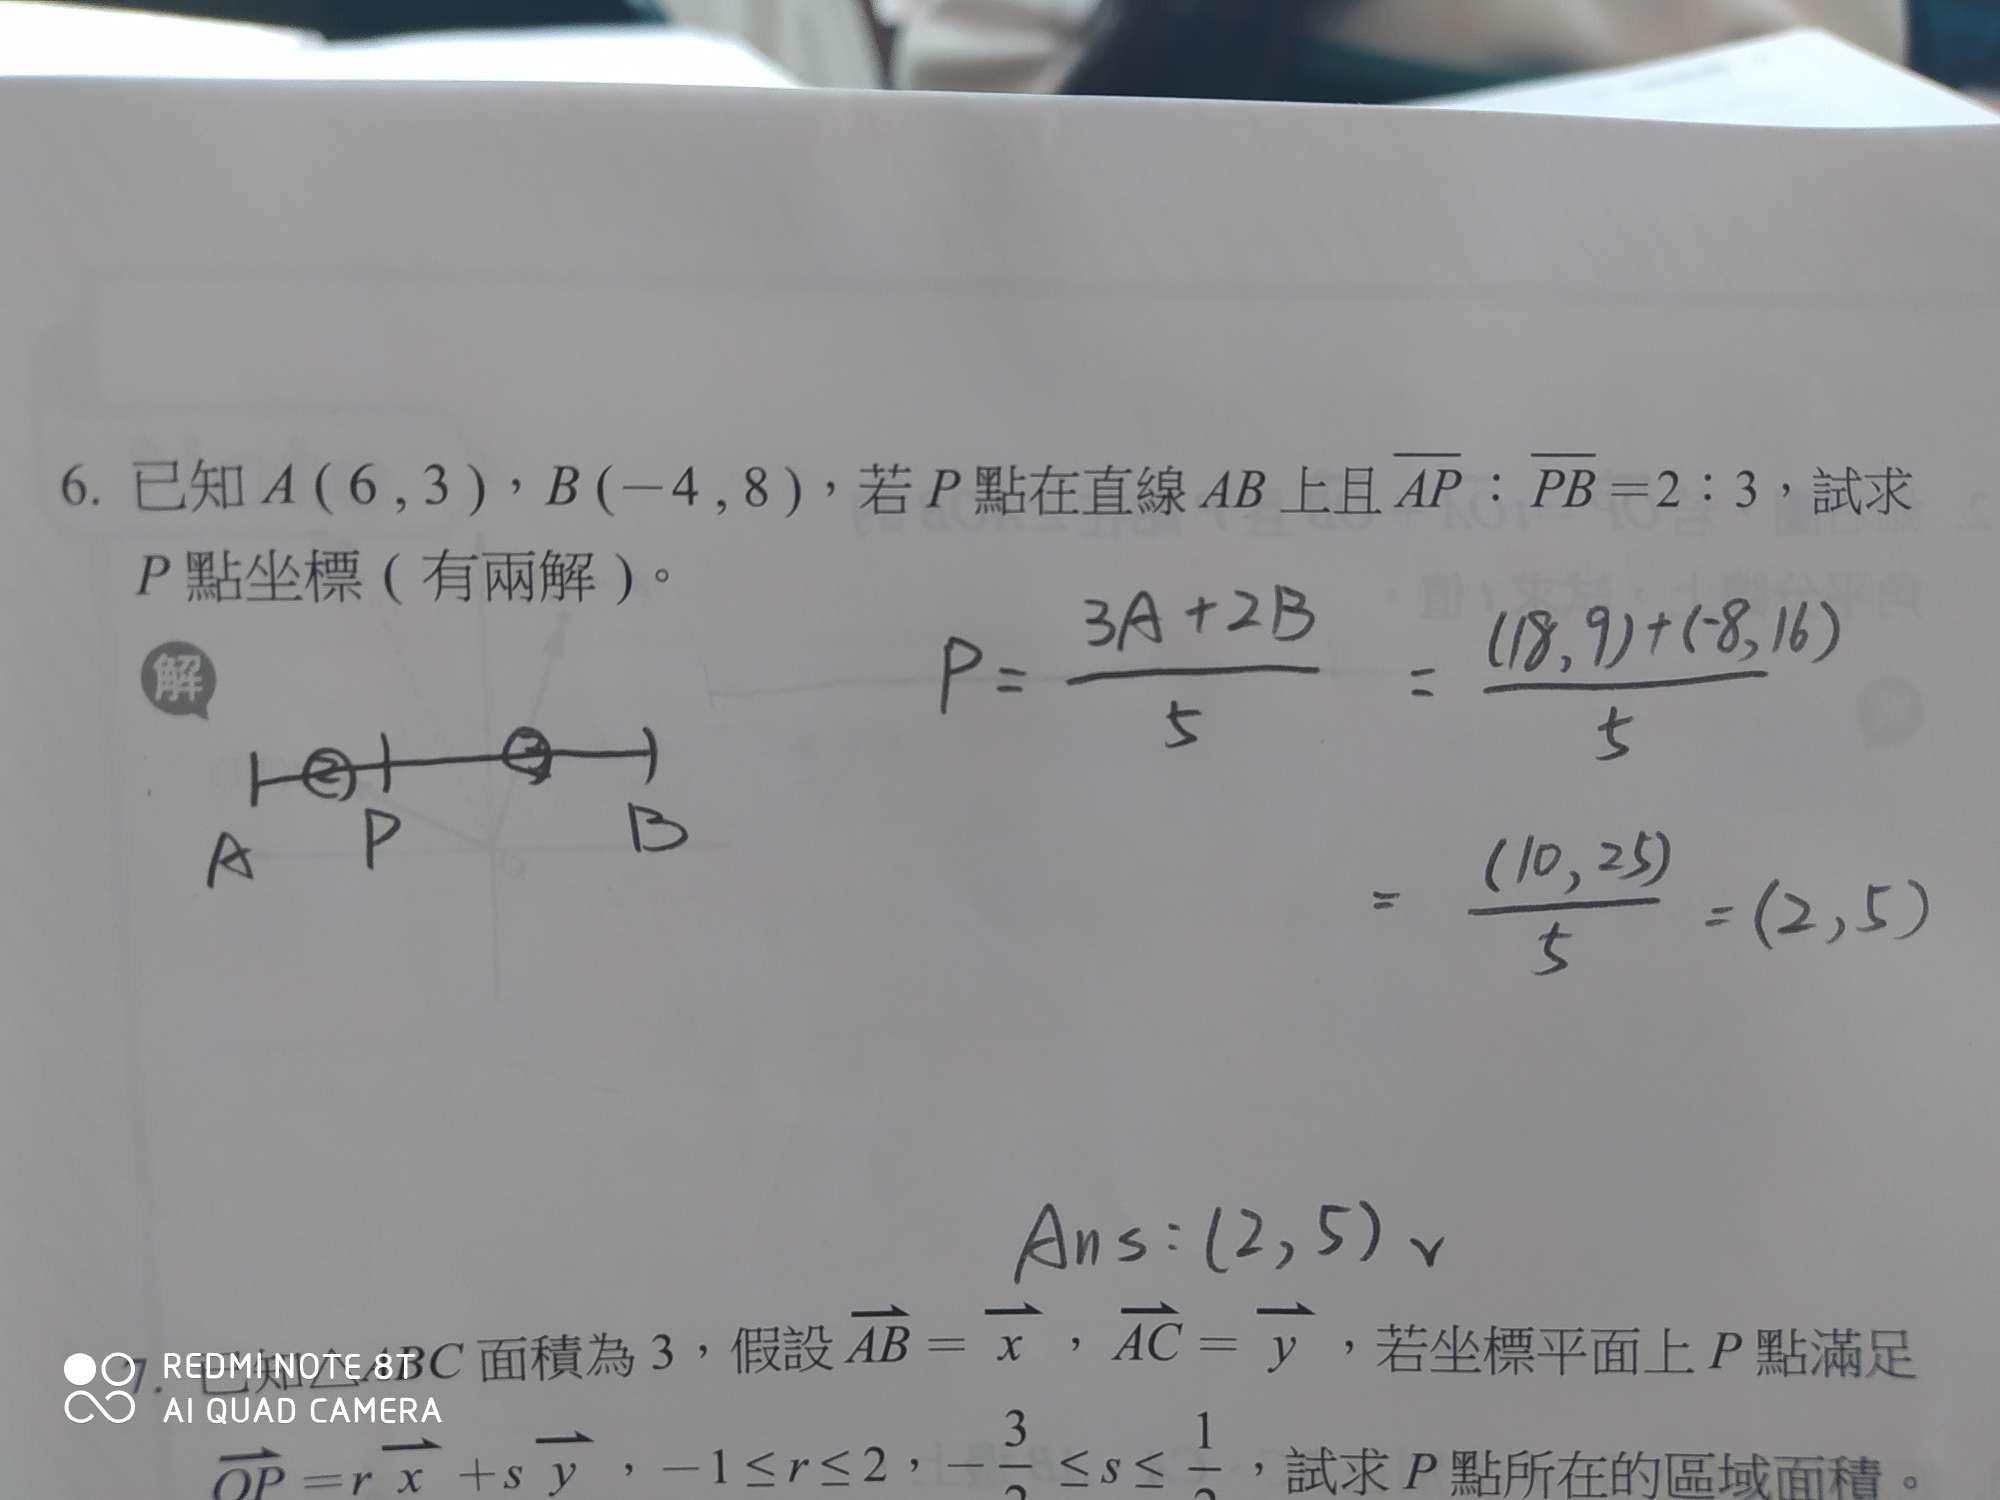 6. 已知 A ( 6 , 3 )，B (－4 , 8 )，若 P 點在直線 AB 上且 AP：PB＝2：3，試求
P 點坐標 ( 有兩解 )。
解
P = 3A+2B / 5 = (18,9)+(-8,16) / 5
② ③
A P B
= (10, 25) / 5 = (2, 5)
Ans: (2, 5)
7. 已知△ABC 面積為 3，假設 AB = x ，AC = y ，若坐標平面上 P 點滿足
OP = r x + s y ，－1 ≤ r ≤ 2，－3/2 ≤ s ≤ 1/2，試求 P 點所在的區域面積。
REDMI NOTE 8T
AI QUAD CAMERA